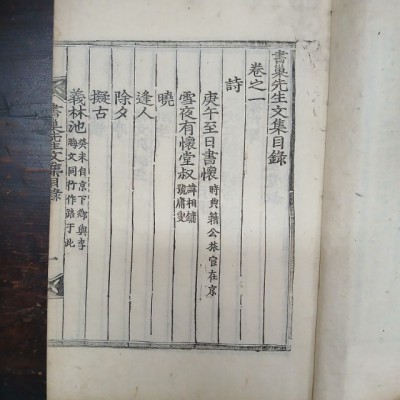 書巢先生文集目錄
卷之一
詩
庚午至日書懷 時典籍公旅宦在京
雪夜有懷堂叔 諱相鏞 號庸叟
曉
逢人
除夕
擬古
義林池 癸未自京下鄉與李 文同行作路于此
書巢先生文集目錄 一